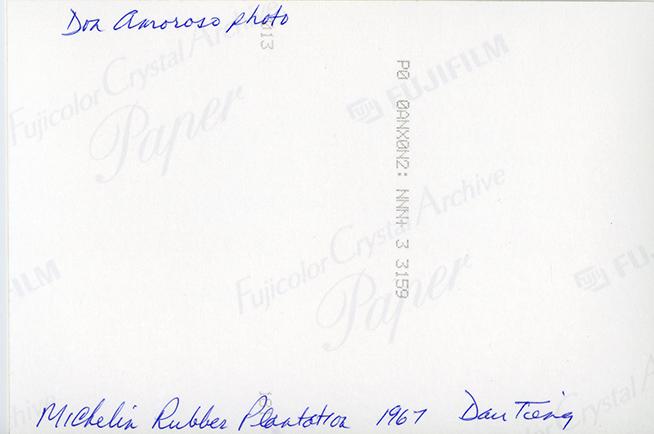 Don Amoroso photo
13
Fujicolor Crystal Archive
Paper
FUJIFILM
P0 0ANX0N2: NNN+ 3 3159
Fujicolor Crystal Archive
Paper
FILM
FUJI
Crystal Archive
Michelin Rubber Plantation 1967 Dau Tieng